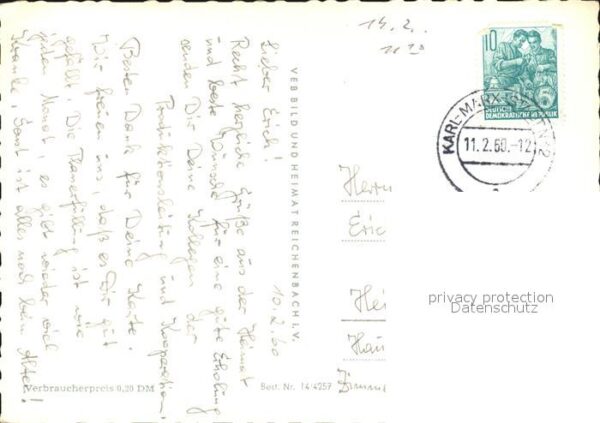 14.2.
11 20
10
DEUTSCHE
DEMOKRATISCHE REPUBLIK
KARL-MARX-STADT
11.2.60.-12
VEB BILD UND HEIMAT REICHENBACH I. V.
10.2.60
Lieber Erich!
Recht herzliche Grüße aus der Heimat
und beste Wünsche für eine gute Erholung
senden Dir Deine Kollegen der
Produktionsleitung und Kooperation.
Besten Dank für Deine Karte.
Wir freuen uns, daß es Dir gut
gefällt. Die Planerfüllung ist wie
jeden Monat, es gibt wieder viel
Sonst ist alles noch beim Alten!
Herrn
Eric
Hei
Hau
Zimme
privacy protection
Datenschutz
Verbraucherpreis 0,20 DM
Best. Nr. 14/4257